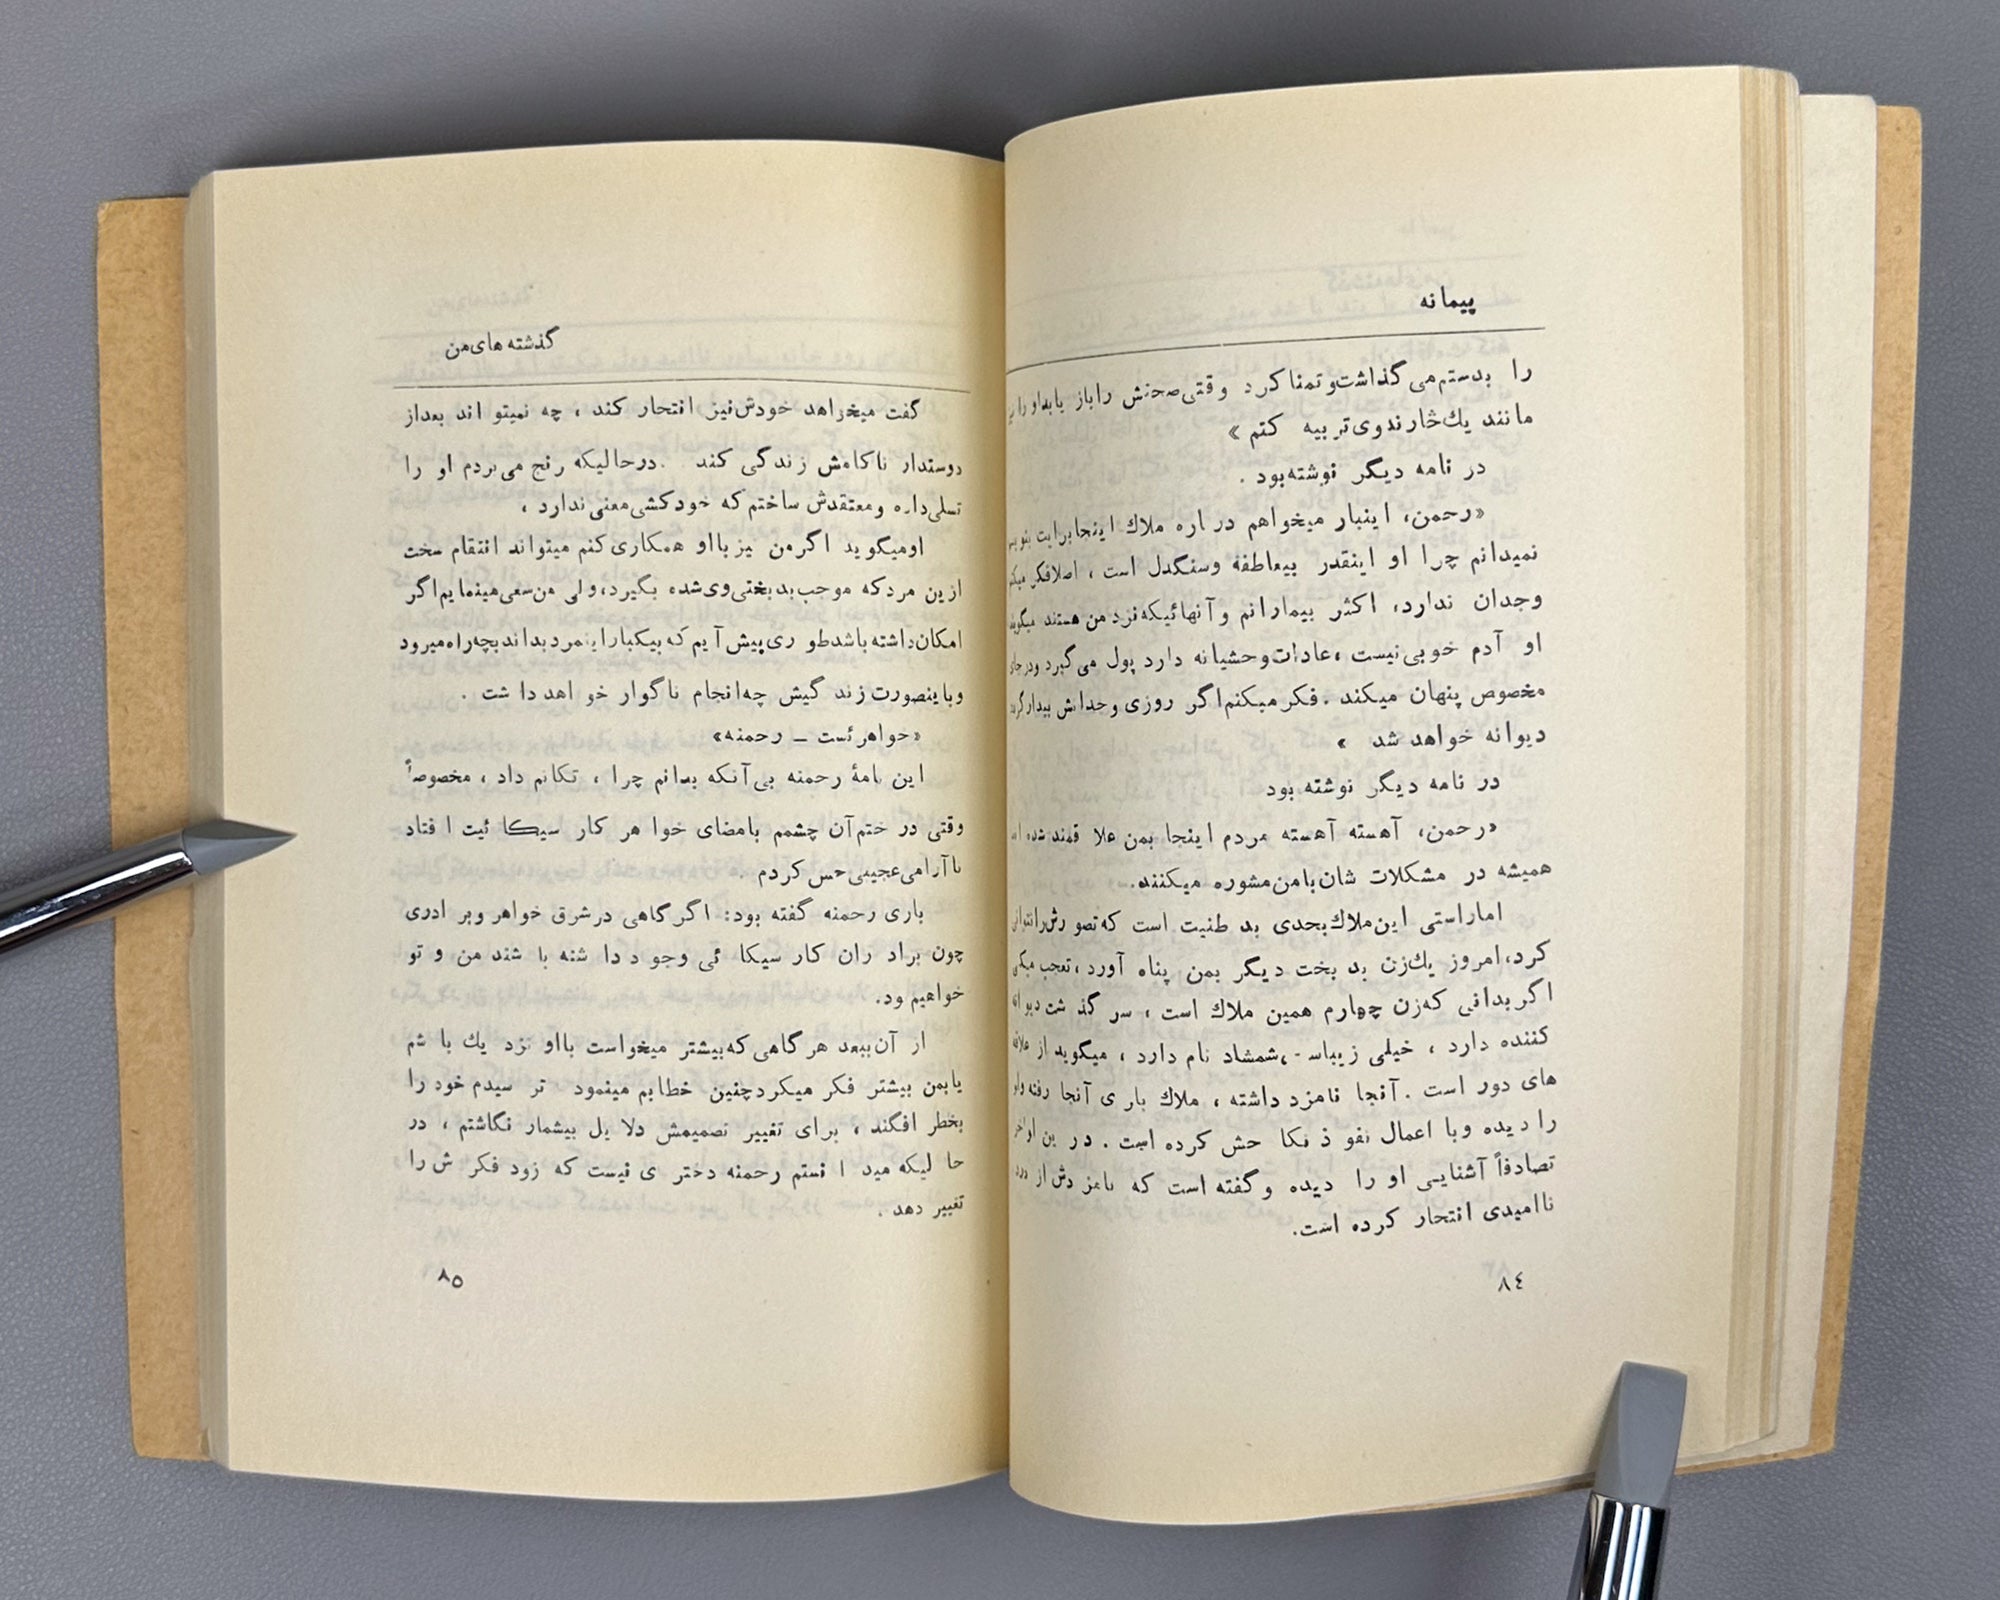 پیمانه
را بدستم می گذاشت و تمنا کرد وقتی صحنش را باز یابد او را نیز
مانند یک څارندوی تربیه کتم »
در نامه دیگر نوشته بود .
«رحمن، اینبار میخواهم در اره ملاک اینجا برایت بنویسم
نمیدانم چرا او اینقدر بیعاطفة وسنگدل است ، اصلا فکر میکنم
وجدان ندارد، اکثر بیمارانم و آنهائیکه نزد من هستند میگویند
او آدم خوبی نیست ، عادات وحشیانه دارد پول می گیرد ودرجای
مخصوص پنهان میکند . فکر میکنم اگر روزی وجدانش بیدار گردد
دیوانه خواهد شد »
در نامه دیگر نوشته بود
«رحمن، آهسته آهسته مردم اینجا بمن علا قمند شده اند
همیشه در مشکلات شان با من مشوره میکنند.
اما راستی این ملاک بحدی بد طنیت است که تصو رش را نتوانی
کرد، امروز یک زن بد بخت دیگر بمن پناه آورد ، تعجب میکنی
اگر بدانی که زن چهارم همین ملاک است ، سر گذ شت دیوانه
کننده دارد ، خیلی زیباست ، شمشاد نام دارد ، میگوید از علاقه
های دور است . آنجا نامزد داشته ، ملاک بار ی آنجا رفته واو
را دیده وبا اعمال نفو ذ نکا حش کرده است . در ین اواخر
تصادفاً آشنایی او را دیده و گفته است که نامز دش از درد
ناامیدی انتحار کرده است.
٨٤
گذشته های من
گفت میخواهد خودش نیز انتحار کند ، چه نمیتو اند بعداز
دوستدار ناکامش زندگی کند . درحالیکه رنج می بردم او را
تسلی داده و معتقدش ساختم که خودکشی معنی ندارد ،
اومیگوید اگر من نیز بااو همکاری کنم میتواند انتقام سخت
ازین مرد که موجب بدبختی وی شده بگیرد، ولی من سعی مینمایم اگر
امکان داشته باشد طو ری پیش آیم که بیکبار اینمرد بداند بچه راه میرود
وباینصورت زند گیش چه انجام ناگوار خو اهد دا شت .
«خواهر ئست ــ رحمنه»
این نامهٔ رحمنه بی آنکه بدانم چرا ، تکانم داد ، مخصوصاً
وقتی در ختم آن چشمم بامضای خوا هر کار سیکا ئیت ا فتاد
ناآرامی عجیبی حس کردم .
باری رحمنه گفته بود: اگر گاهی در شرق خواهر وبر ادری
چون براد ران کار سیکا ئی وجو د دا شته با شند من و تو
خواهیم ود.
از آن ببعد هر گاهی که بیشتر میخواست بااو نزد یک با شم
یابمن بیشتر فکر میکرد چنین خطابم مینمود تر سیدم خود را
بخطر افگند ، برای تغییر تصمیمش دلا یل بیشمار نگاشتم ، در
حا لیکه مید ا نستم رحمنه دختر ی نیست که زود فکر ش را
تغییر دهد .
٨٥